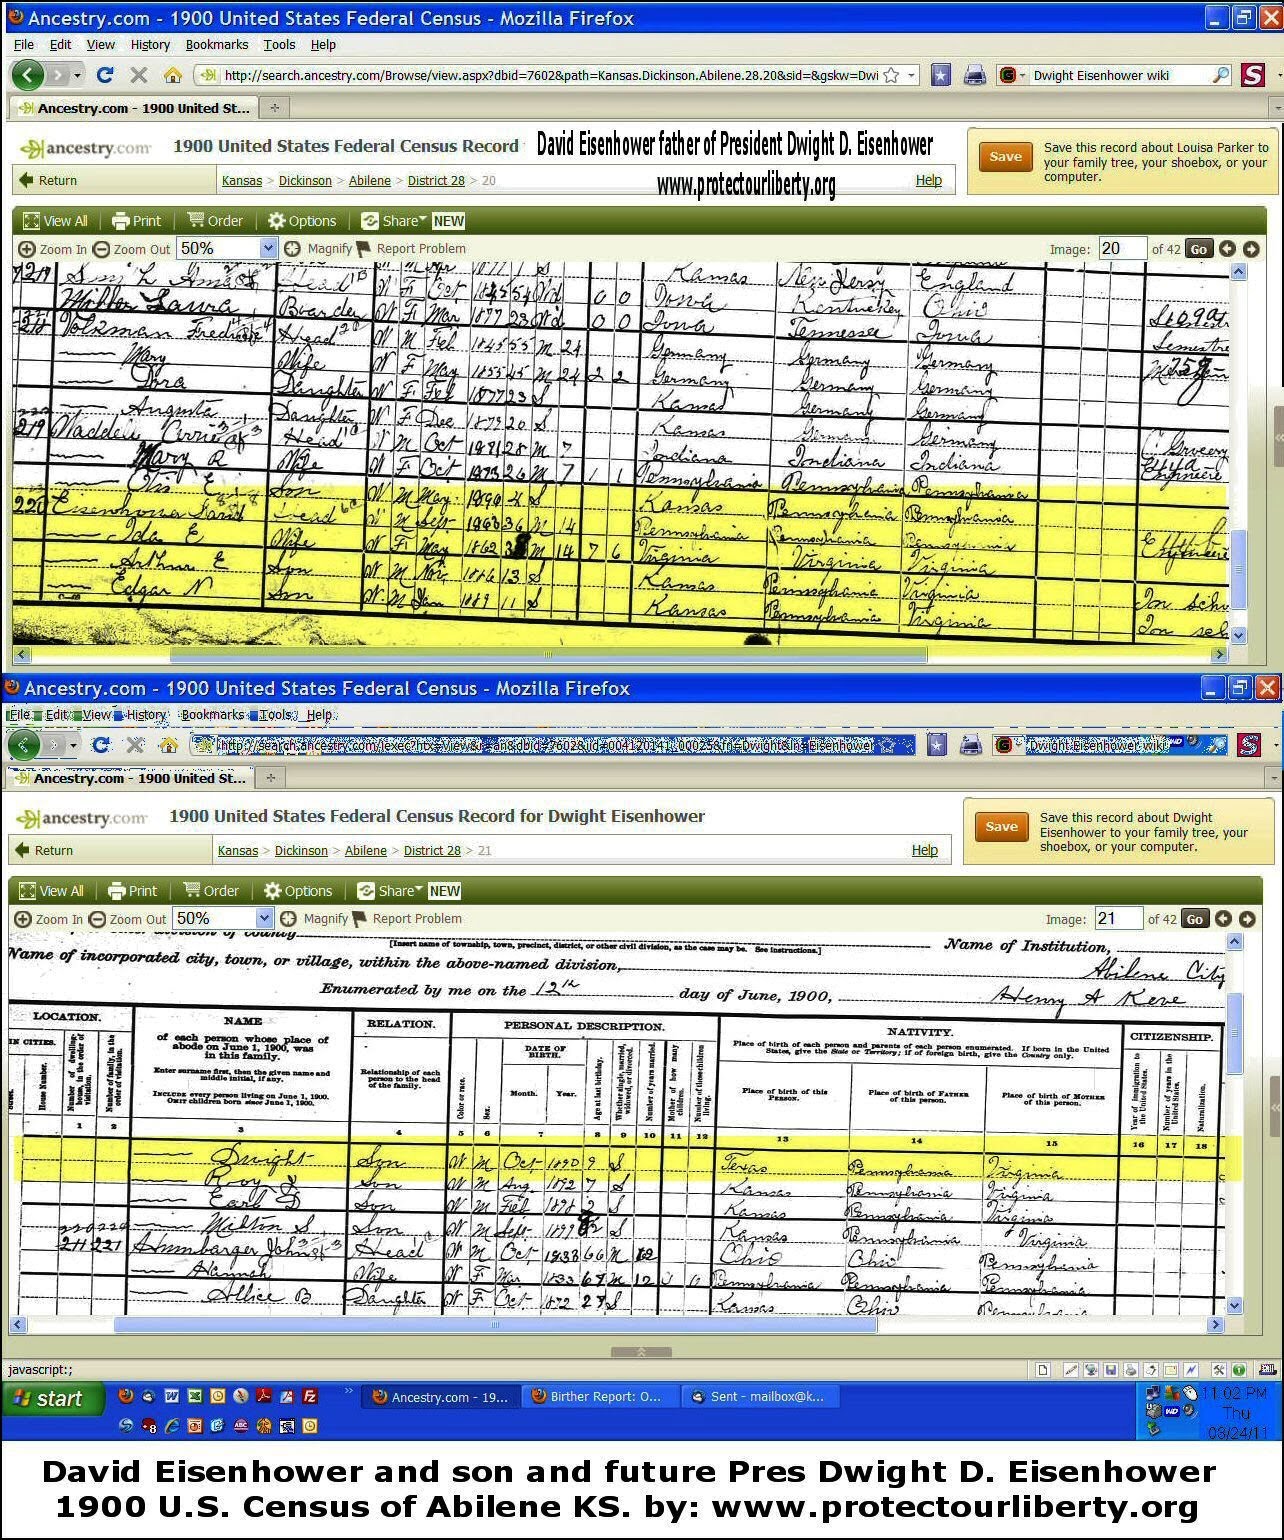 Ancestry.com - 1900 United States Federal Census - Mozilla Firefox
File Edit View History Bookmarks Tools Help
http://search.ancestry.com/Browse/view.aspx?dbid=7602&path=Kansas.Dickinson.Abilene.28.20&sid=&gskw=Dwi Dwight Eisenhower wiki
Ancestry.com - 1900 United St...
ancestry.com 1900 United States Federal Census Record David Eisenhower father of President Dwight D. Eisenhower
www.protectourliberty.org
Save Save this record about Louisa Parker to
your family tree, your shoebox, or your
computer.
Return Kansas > Dickinson > Abilene > District 28 > 20 Help
View All Print Order Options Share NEW
Zoom In Zoom Out 50% Magnify Report Problem Image: 20 of 42 Go
Head Kansas New Jersey England
Miller Laura Boarder W F Mar 1877 23 Wd 0 0 Iowa Kentuckey Ohio
Volkman Head W M Feb 1845 55 M 24 Iowa Tennessee Iowa
Mary Wife W F May 1855 45 M 24 2 2 Germany Germany Germany
Dora Daughter W F Feb 1877 23 S Germany Germany Germany
Augusta Daughter W F Dec 1879 20 S Kansas Germany Germany
219 Head M Oct 28 M 7 Kansas Germany Germany
Mary R Wife W F Oct 1873 26 M 7 1 1 Indiana Indiana Indiana
Otis E Son W M May 1896 4 S Pennsylvania Pennsylvania Pennsylvania
220 Head M Sept 36 M 14 Kansas Pennsylvania Pennsylvania
Ida E Wife W F May 1862 38 M 14 7 6 Pennsylvania Pennsylvania Pennsylvania
Arthur E Son W M Nov 1886 13 S Virginia Virginia Virginia
Edgar N Son W M Jan 1889 11 S Kansas Pennsylvania Virginia
Kansas Pennsylvania Virginia
Ancestry.com - 1900 United States Federal Census - Mozilla Firefox
File Edit View History Bookmarks Tools Help
Dwight Eisenhower wiki
Ancestry.com - 1900 United St...
ancestry.com 1900 United States Federal Census Record for Dwight Eisenhower
Save Save this record about Dwight
Eisenhower to your family tree, your
shoebox, or your computer.
Return Kansas > Dickinson > Abilene > District 28 > 21 Help
View All Print Order Options Share NEW
Zoom In Zoom Out 50% Magnify Report Problem Image: 21 of 42 Go
division of county [Insert name of township, town, precinct, district, or other civil division, as the case may be. See instructions.] Name of Institution,
Name of incorporated city, town, or village, within the above-named division, Abilene City
Enumerated by me on the 12th day of June, 1900, Henry A Keve
LOCATION.
IN CITIES.
House Number.
Number of dwelling-house, in the order of visitation.
Number of family, in the order of visitation.
NAME
of each person whose place of
abode on June 1, 1900, was
in this family.
Enter surname first, then the given name and
middle initial, if any.
INCLUDE every person living on June 1, 1900.
OMIT children born since June 1, 1900.
RELATION.
Relationship of each
person to the head
of the family.
PERSONAL DESCRIPTION.
Color or race.
Sex.
DATE OF
BIRTH.
Month. Year.
Age at last birthday.
Whether single, married, widowed, or divorced.
Number of years married.
Mother of how many children.
Number of these children living.
NATIVITY.
Place of birth of each person and parents of each person enumerated. If born in the United
States, give the State or Territory; if of foreign birth, give the Country only.
Place of birth of this
PERSON.
Place of birth of FATHER
of this person.
Place of birth of MOTHER
of this person.
CITIZENSHIP.
Year of immigration to the United States.
Number of years in the United States.
Naturalization.
1 2 3 4 5 6 7 8 9 10 11 12 13 14 15 16 17 18
Dwight Son W M Oct 1890 9 S Texas Pennsylvania Virginia
Roy J Son W M Aug 1892 7 S Kansas Pennsylvania Virginia
Earl D Son W M Feb 1898 2 S Kansas Pennsylvania Virginia
Milton S Son W M Sept 1899 S Kansas Pennsylvania Virginia
211 221 Humbarger Head W M Oct 1833 66 M 12 Ohio Ohio Pennsylvania
Hannah Wife W F Mar 1833 67 M 12 Pennsylvania Pennsylvania Pennsylvania
Allice B Daughter W F Oct 1872 27 S Kansas Ohio Pennsylvania
javascript:;
start Ancestry.com - 19... Birther Report: O... Sent - mailbox@k... 11:02 PM
Thu
03/24/11
David Eisenhower and son and future Pres Dwight D. Eisenhower
1900 U.S. Census of Abilene KS. by: www.protectourliberty.org